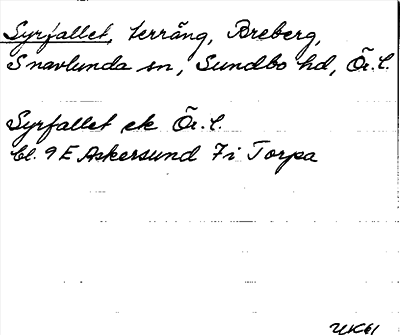 Syrfallet, terräng, Breberg,
Snavlunda sn, Sundbo hd, Ör. l.
Syrfallet ek Ör. l.
bl. 9 E Askersund 7 i Torpa
UK61